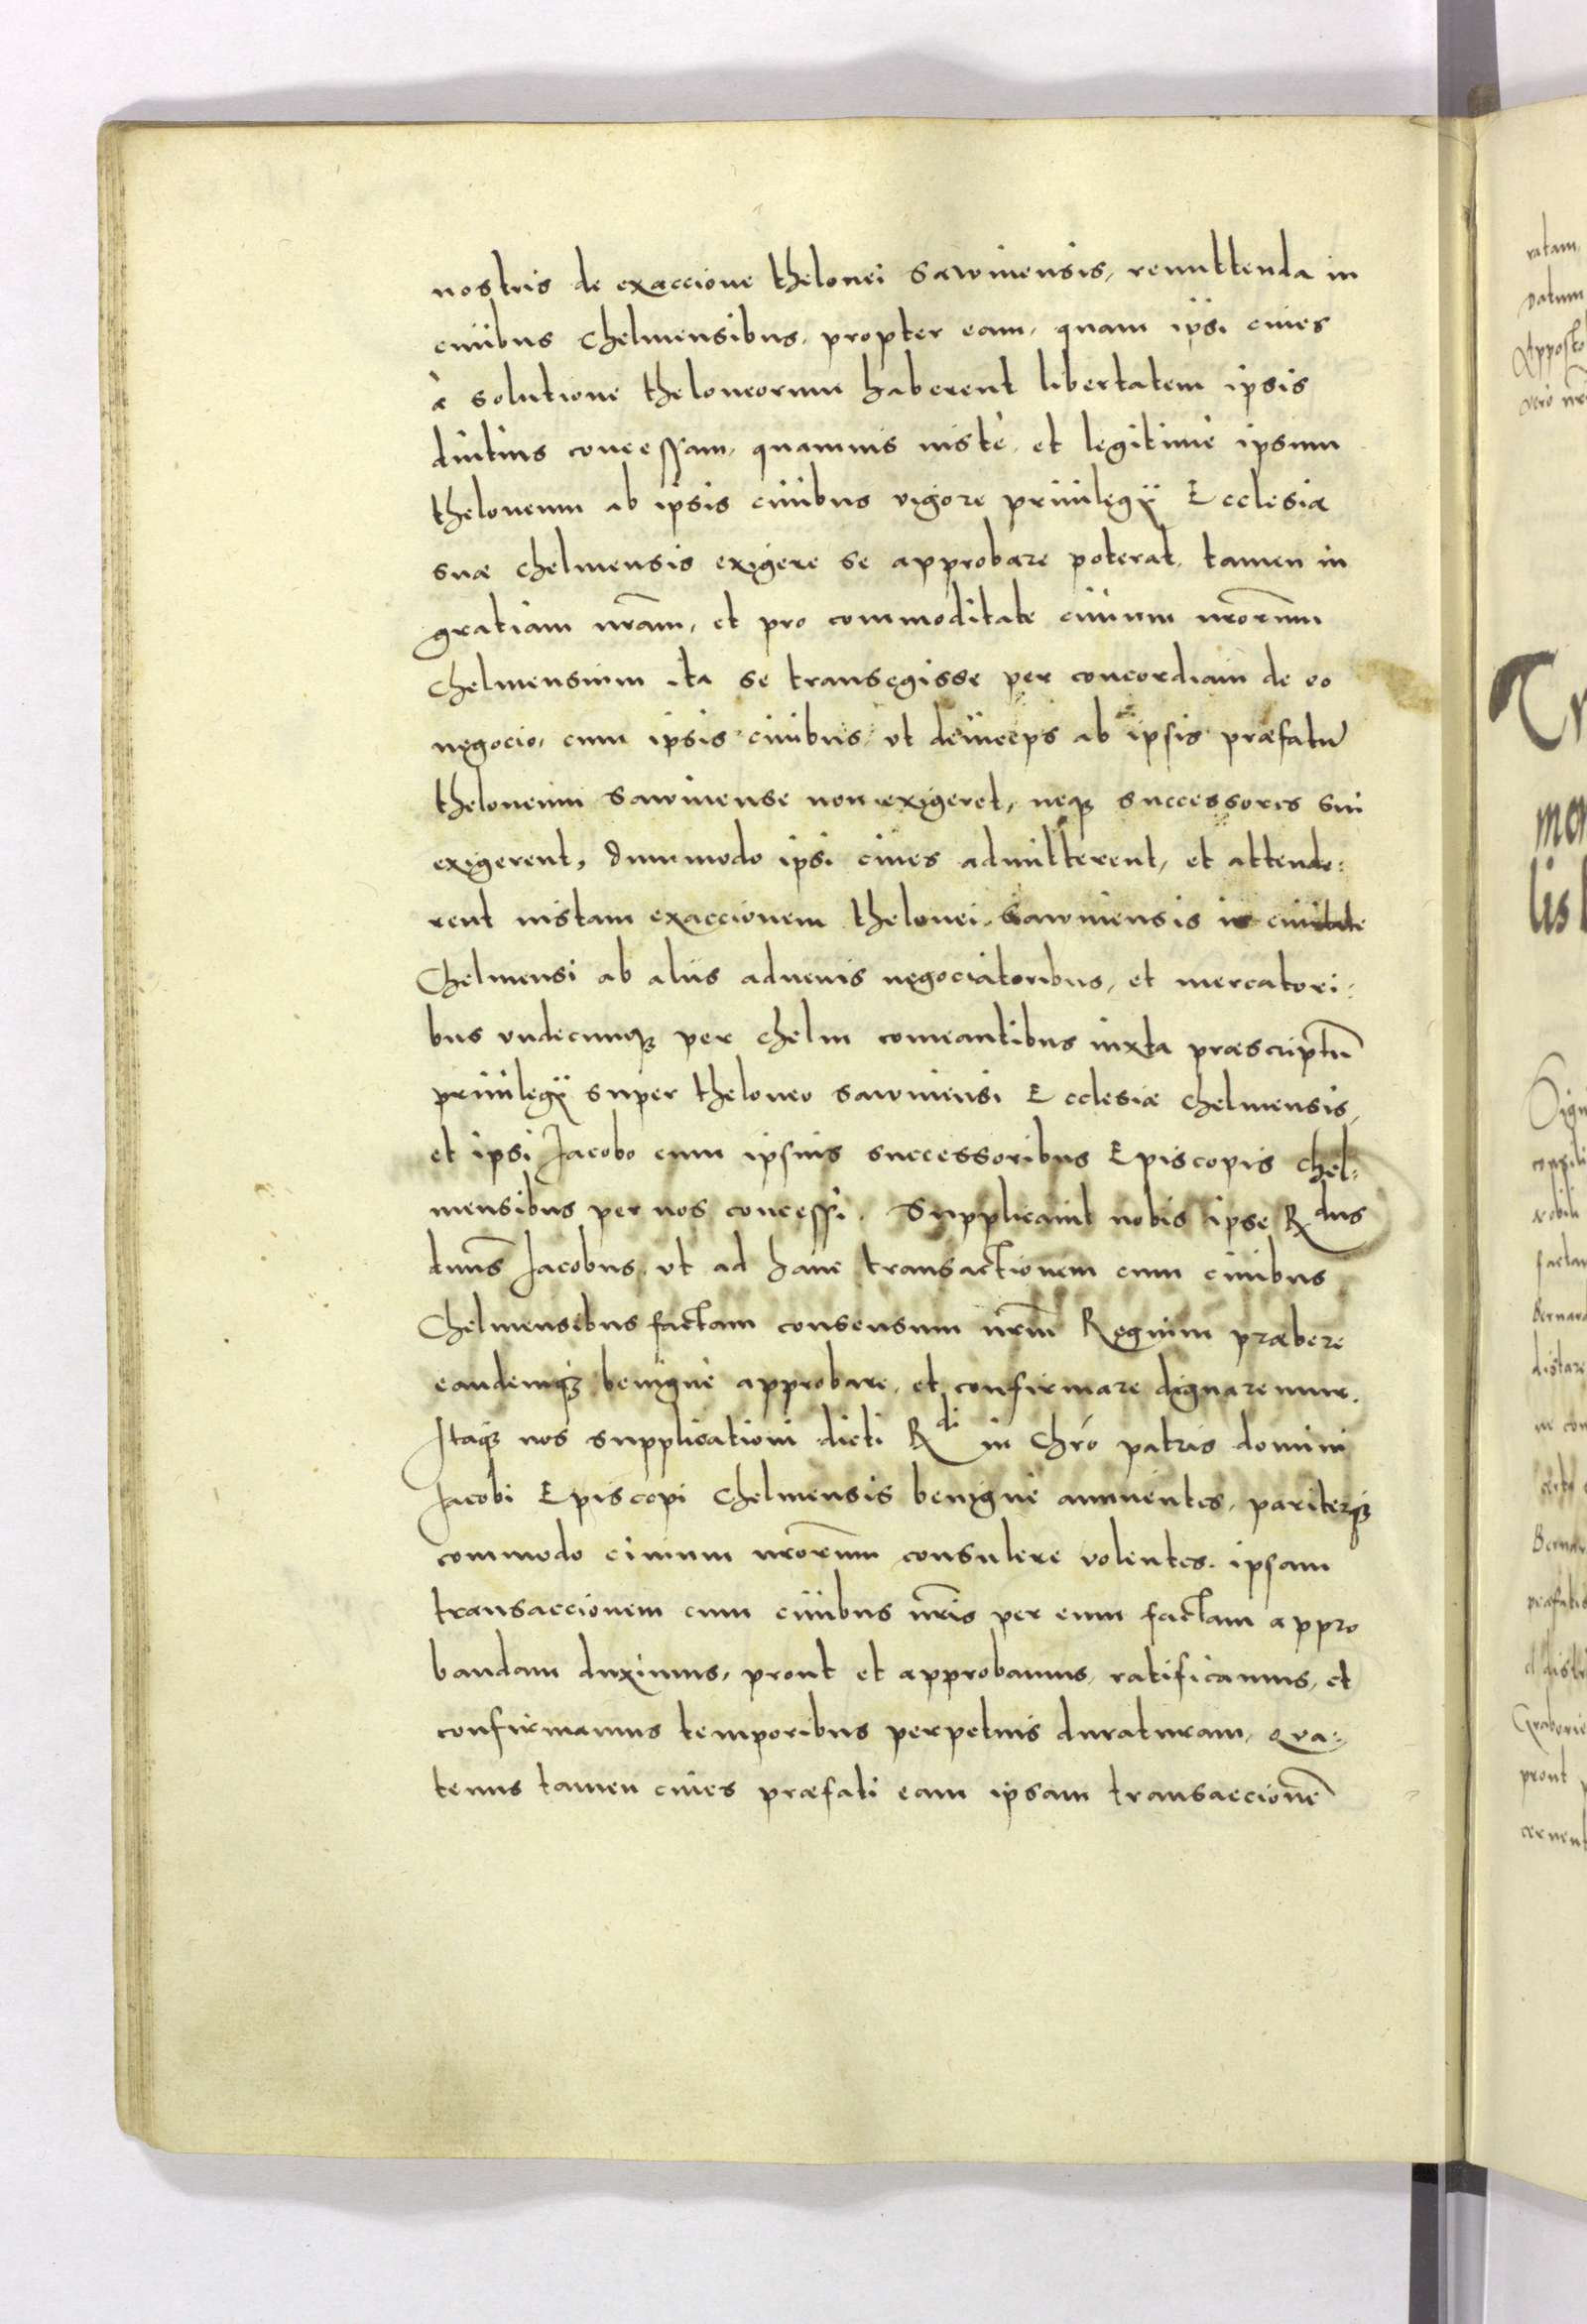 nostris de exaccione thelonei Sawinensis, remittenda in
ciuibus Chelmensibus, propter eam, quam ipsi ciues
à solutione theloneorum haberent libertatem ipsis
diutius concessam, quamuis iustè, et legitimè ipsum
theloneum ab ipsis ciuibus vigore priuilegÿ Ecclesiæ
suæ Chelmensis exigere se approbare poterat, tamen in
gratiam nr̄am, et pro commoditate ciuium nr̄orum
Chelmensium ita se transegisse per concordiam de eo
negocio, cum ipsis ciuibus, vt deinceps ab ipsis præfatū
theloneum Sawinense non exigeret, neqꝫ successores sui
exigerent, dummodo ipsi ciues admitterent, et attende:
rent iustam exaccionem thelonei Sawinensis in ciuitate
Chelmensi ab alijs aduenis negociatoribus, et mercatori:
bus vndecunqꝫ per Chelm comeantibus iuxta præscriptū
priuilegÿ super theloneo Sawinensi Ecclesiæ Chelmensis,
et ipsi Jacobo cum ipsius successoribus Episcopis Chel:
mensibus per nos concessi. Supplicauit nobis ipse Rdus
dnūs Jacobus, vt ad hanc transactionem cum ciuibus
Chelmensibus factam consensum nr̄m Regium præbere
eandemqꝫ benignè approbare, et confirmare dignaremur.
Itaqꝫ nos supplicationi dicti Rdi in Chrō patris domini
Jacobi Episcopi Chelmensis benignè annuentes, pariterqꝫ
commodo ciuium nr̄orum consulere volentes, ipsam
transaccionem cum ciuibus nr̄is per eum factam appro
bandam duximus, prout et approbamus, ratificamus, et
confirmamus temporibus perpetuis duraturam, qua:
tenus tamen ciues præfati eam ipsam transaccionē